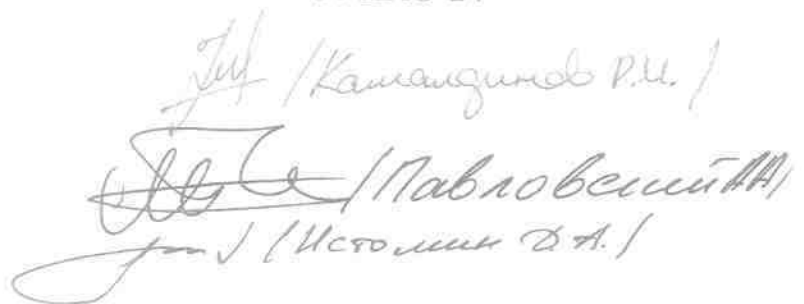 /Камалдинов Р.И./
/Павловский АА/
/Истомин Д.А./